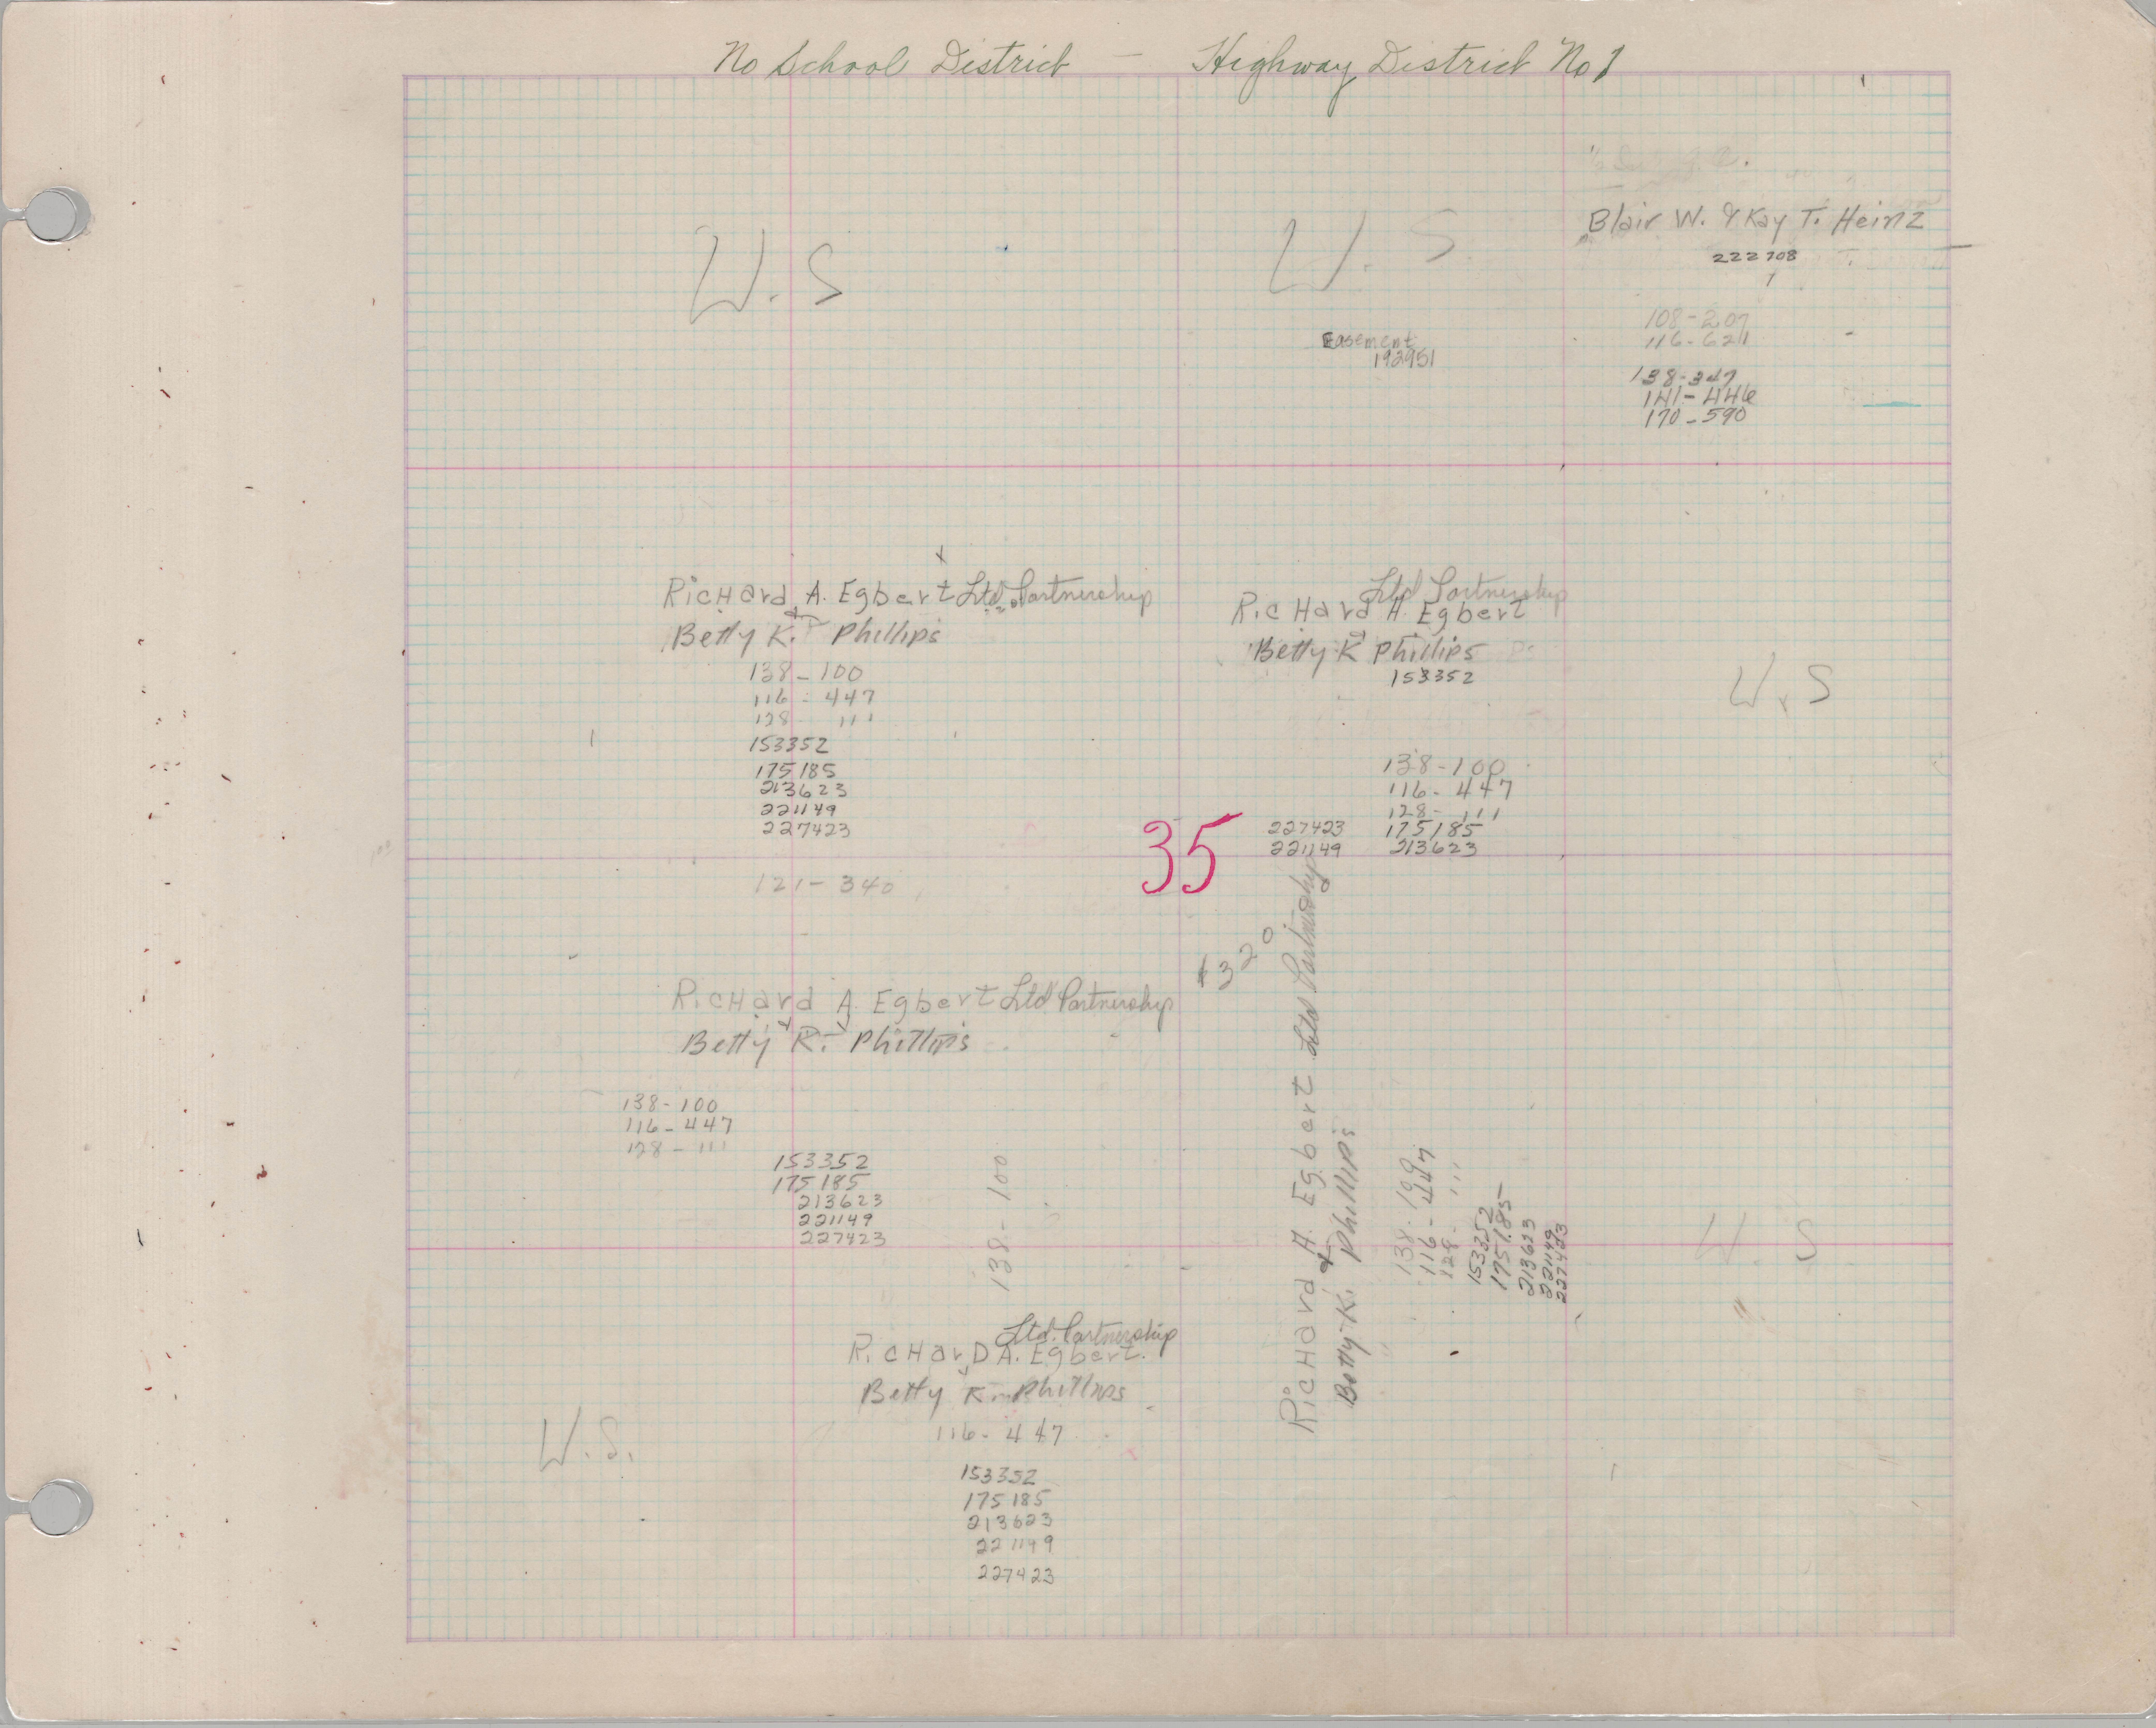 No School District — Highway District No 1
Blair W. & Kay T. Heinz
222708
W. S
W. S
Easement
192951
108-207
116-621
138-347
141-446
170-590
Richard A. Egbert Ltd. Partnership
&
Betty K. Phillips
138-100
116-447
128 111
153352
175185
213623
221149
227423
121-340
Ltd Partnership
Richard A. Egbert
&
Betty K Phillips
153352
138-100
116-447
128-111
227423 175185
221149 213623
W. S
35
Richard A. Egbert Ltd Partnership
Betty K. Phillips
138-100
116-447
128-111
153352
175185
213623
221149
227423
138-100
Richard A. Egbert Ltd Partnership
&
Betty K. Phillips
138-100
116-447
128-111
153352
175185
213623
221149
227423
W. S
Ltd. Partnership
Richard A. Egbert.
Betty K. Phillips
116-447
153352
175185
213623
221149
227423
W.S.